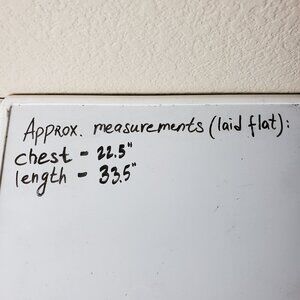 Approx. measurements (laid flat):
chest - 22.5"
length - 33.5"